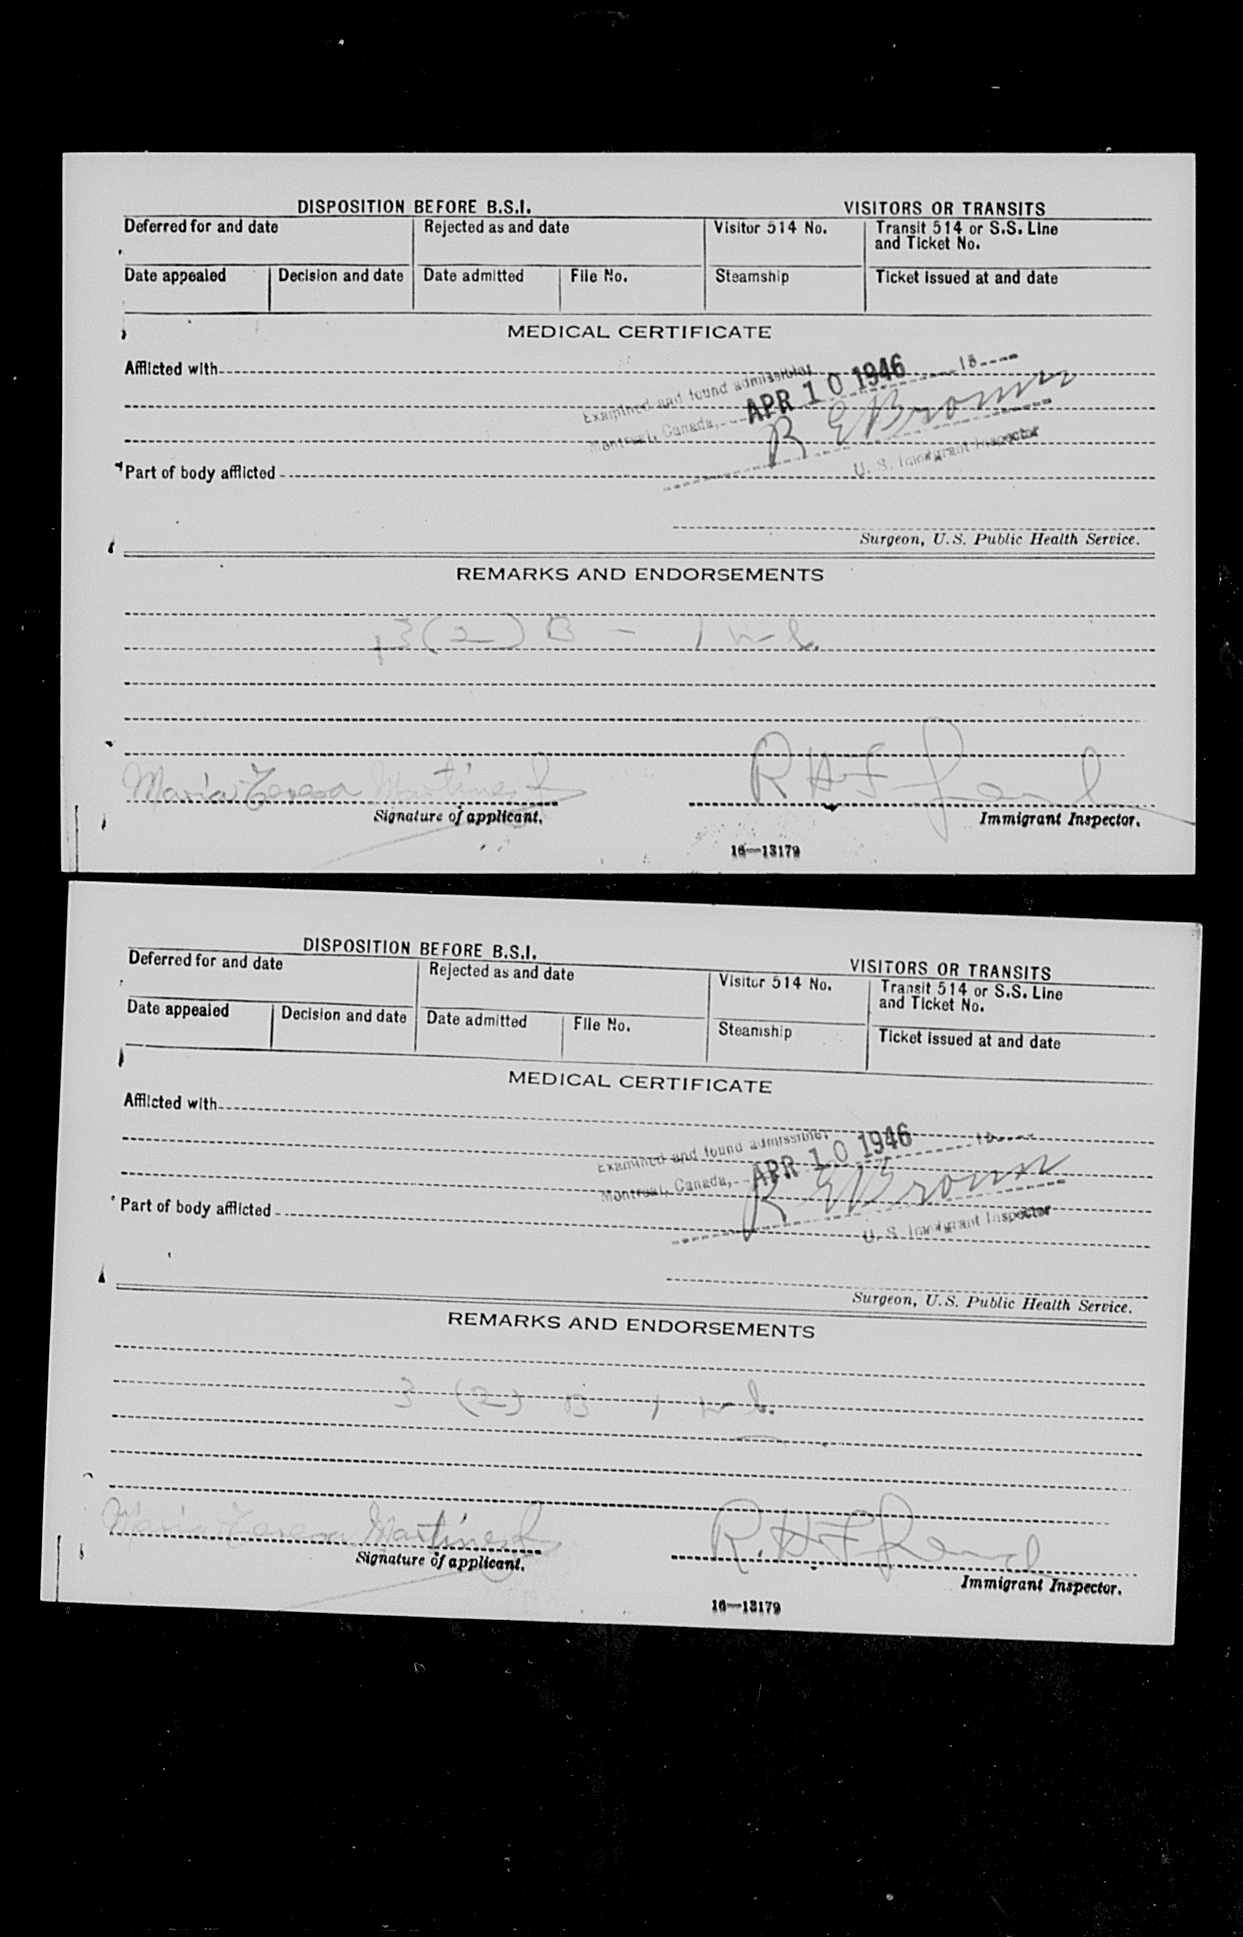 DISPOSITION BEFORE B.S.I.
VISITORS OR TRANSITS
Deferred for and date
Rejected as and date
Visitor 514 No.
Transit 514 or S.S. Line
and Ticket No.
Date appealed
Decision and date
Date admitted
File No.
Steamship
Ticket issued at and date
MEDICAL CERTIFICATE
Afflicted with
Examined and found admissible;
Montreal, Canada, APR 10 1946
R E Brown
U. S. Immigrant Inspector
Part of body afflicted
Surgeon, U.S. Public Health Service.
REMARKS AND ENDORSEMENTS
3(2) B -
Maria Teresa Martinez
R H F
Signature of applicant.
Immigrant Inspector.
16—13179
DISPOSITION BEFORE B.S.I.
VISITORS OR TRANSITS
Deferred for and date
Rejected as and date
Visitor 514 No.
Transit 514 or S.S. Line
and Ticket No.
Date appealed
Decision and date
Date admitted
File No.
Steamship
Ticket issued at and date
MEDICAL CERTIFICATE
Afflicted with
Examined and found admissible;
Montreal, Canada, APR 10 1946
R E Brown
U. S. Immigrant Inspector
Part of body afflicted
Surgeon, U.S. Public Health Service.
REMARKS AND ENDORSEMENTS
3 (2) B
Maria Teresa Martinez
R. H F
Signature of applicant.
Immigrant Inspector.
16—13179